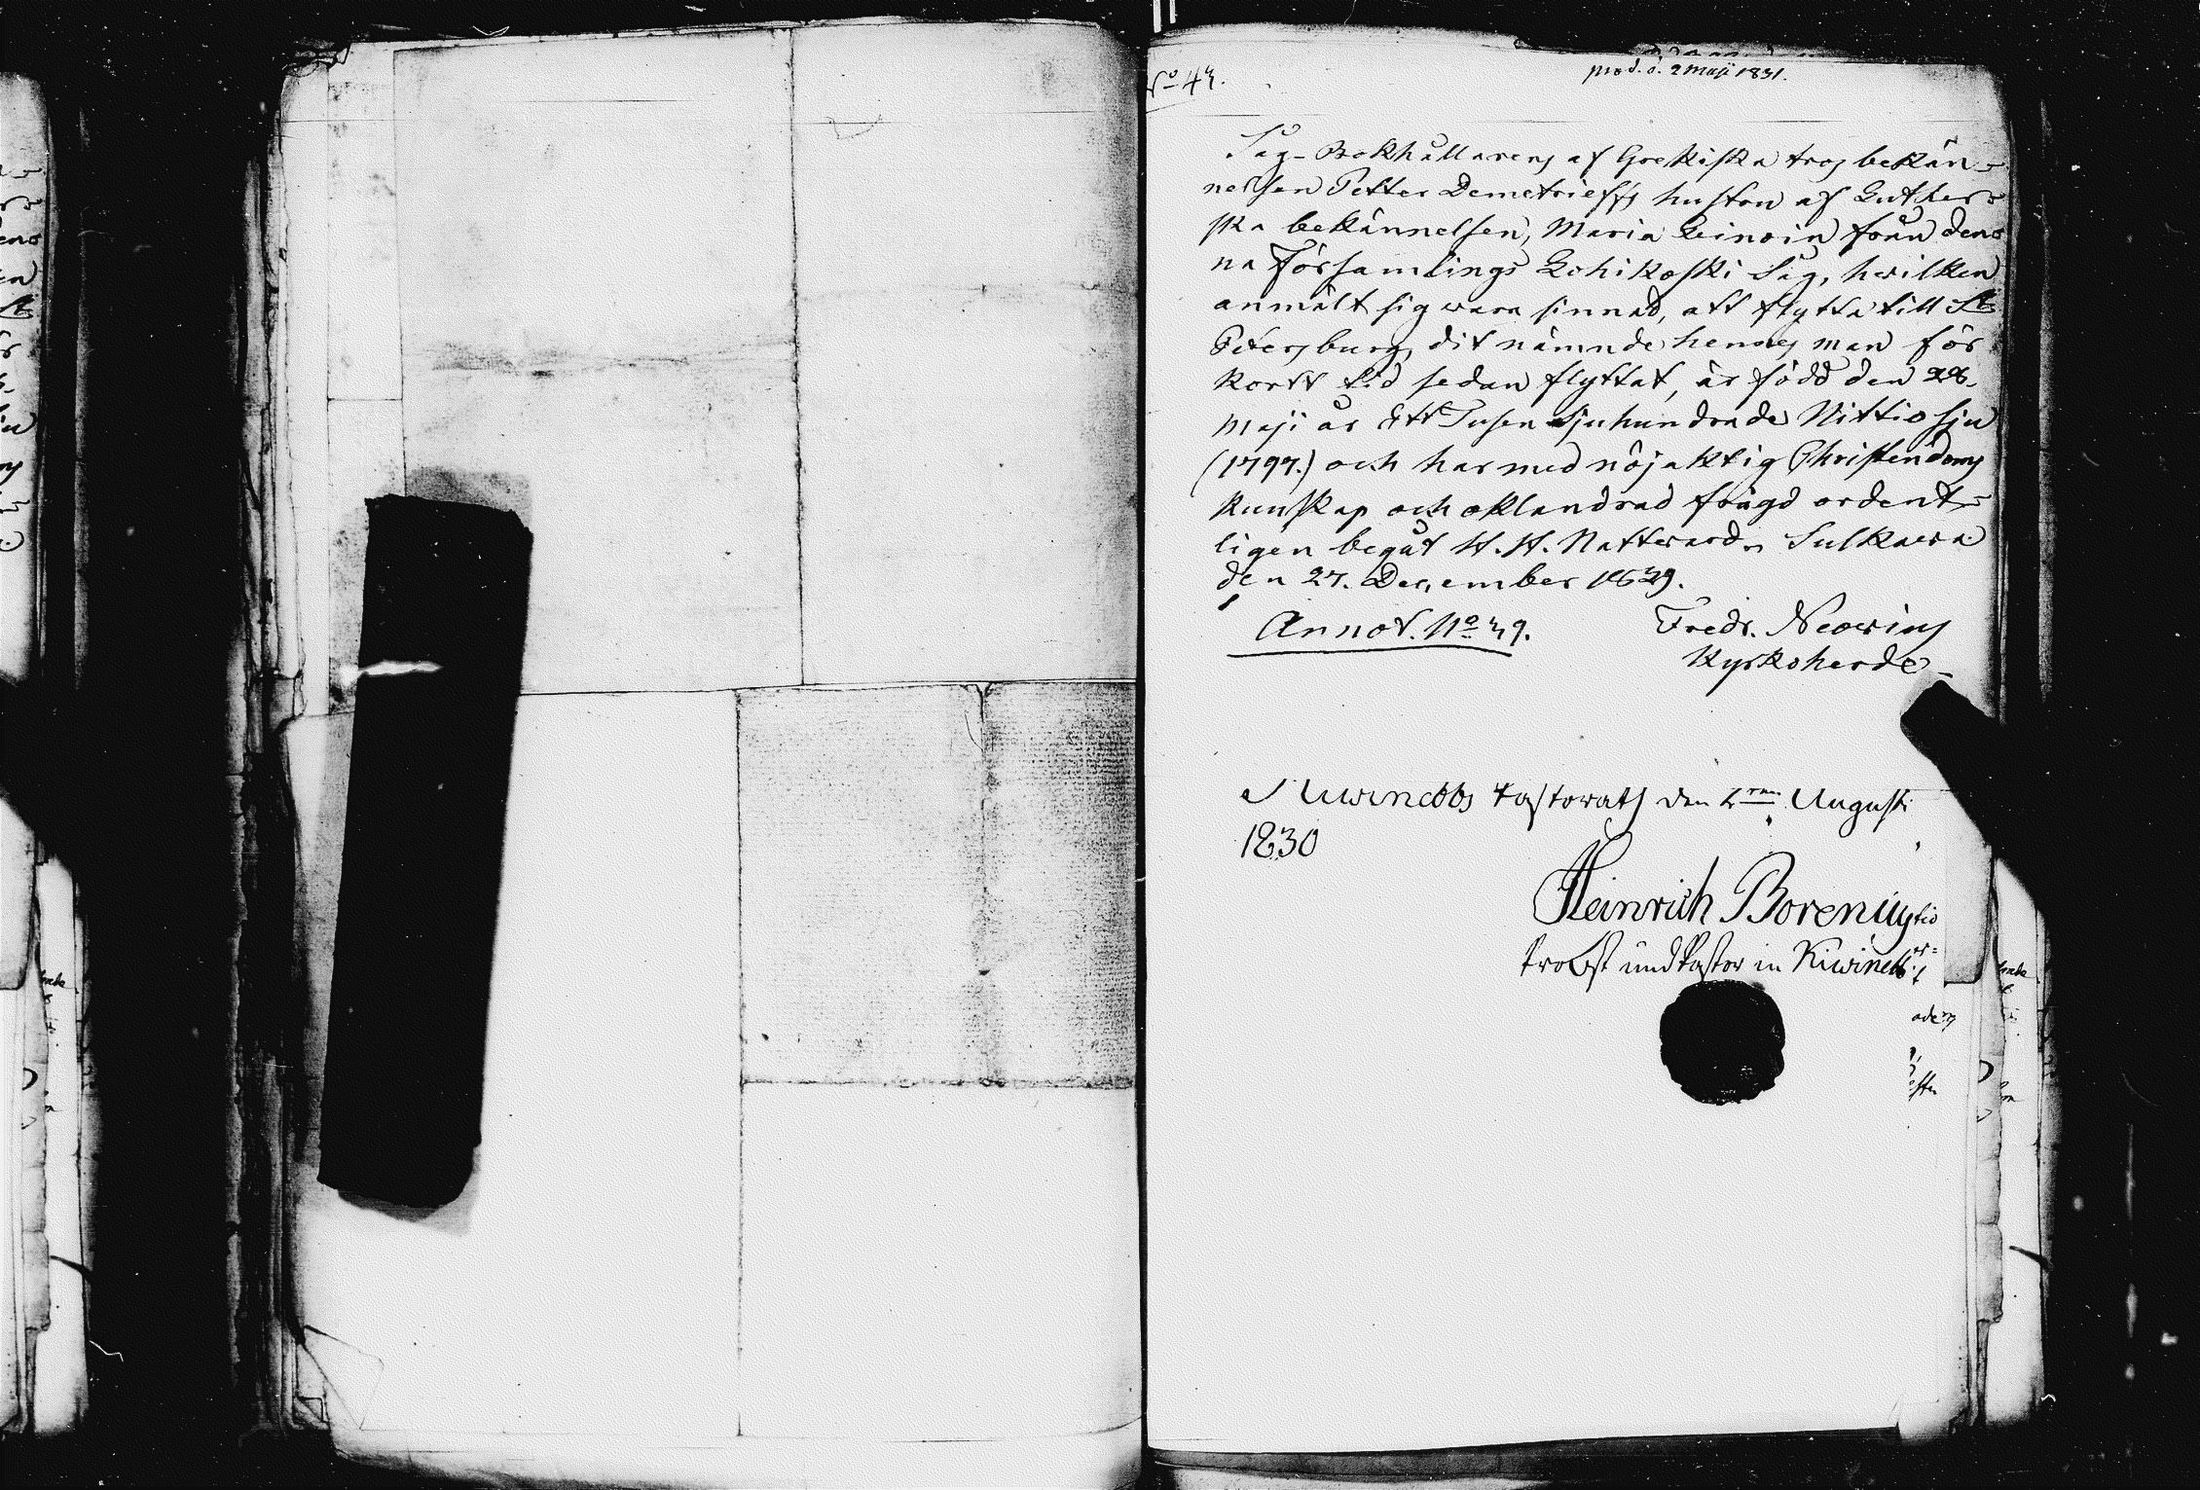 No 43.
prod. d. 2 Maji 1831.
Såg-Bokhållarens af Grekiska trosbekän-
nelsen Petter Demetrieffs hustru af Luther-
ska bekännelsen, Maria Leinoin från den-
na Församlings Lohikoski Såg, hvilken
anmält sig wara sinnad, att flytta till St
Petersburg, dit nämnde hennes man för
kort tid sedan flyttat, är född den 28
Maji år Ett Tusen sjuhundrade Nittio sju
(1797.) och har med nöjaktig Christendoms
kunskap och oklandrad frägd ordent-
ligen begåt H. H. Nattward. Sulkawa
den 27. December 1829.
Annot. No 39.
Fredr. Neovius
Kyrkoherde
Kiwinebbs Pastorath den August
1830
Heinrich Borenius
Probst und Pastor in Kiwinebb.